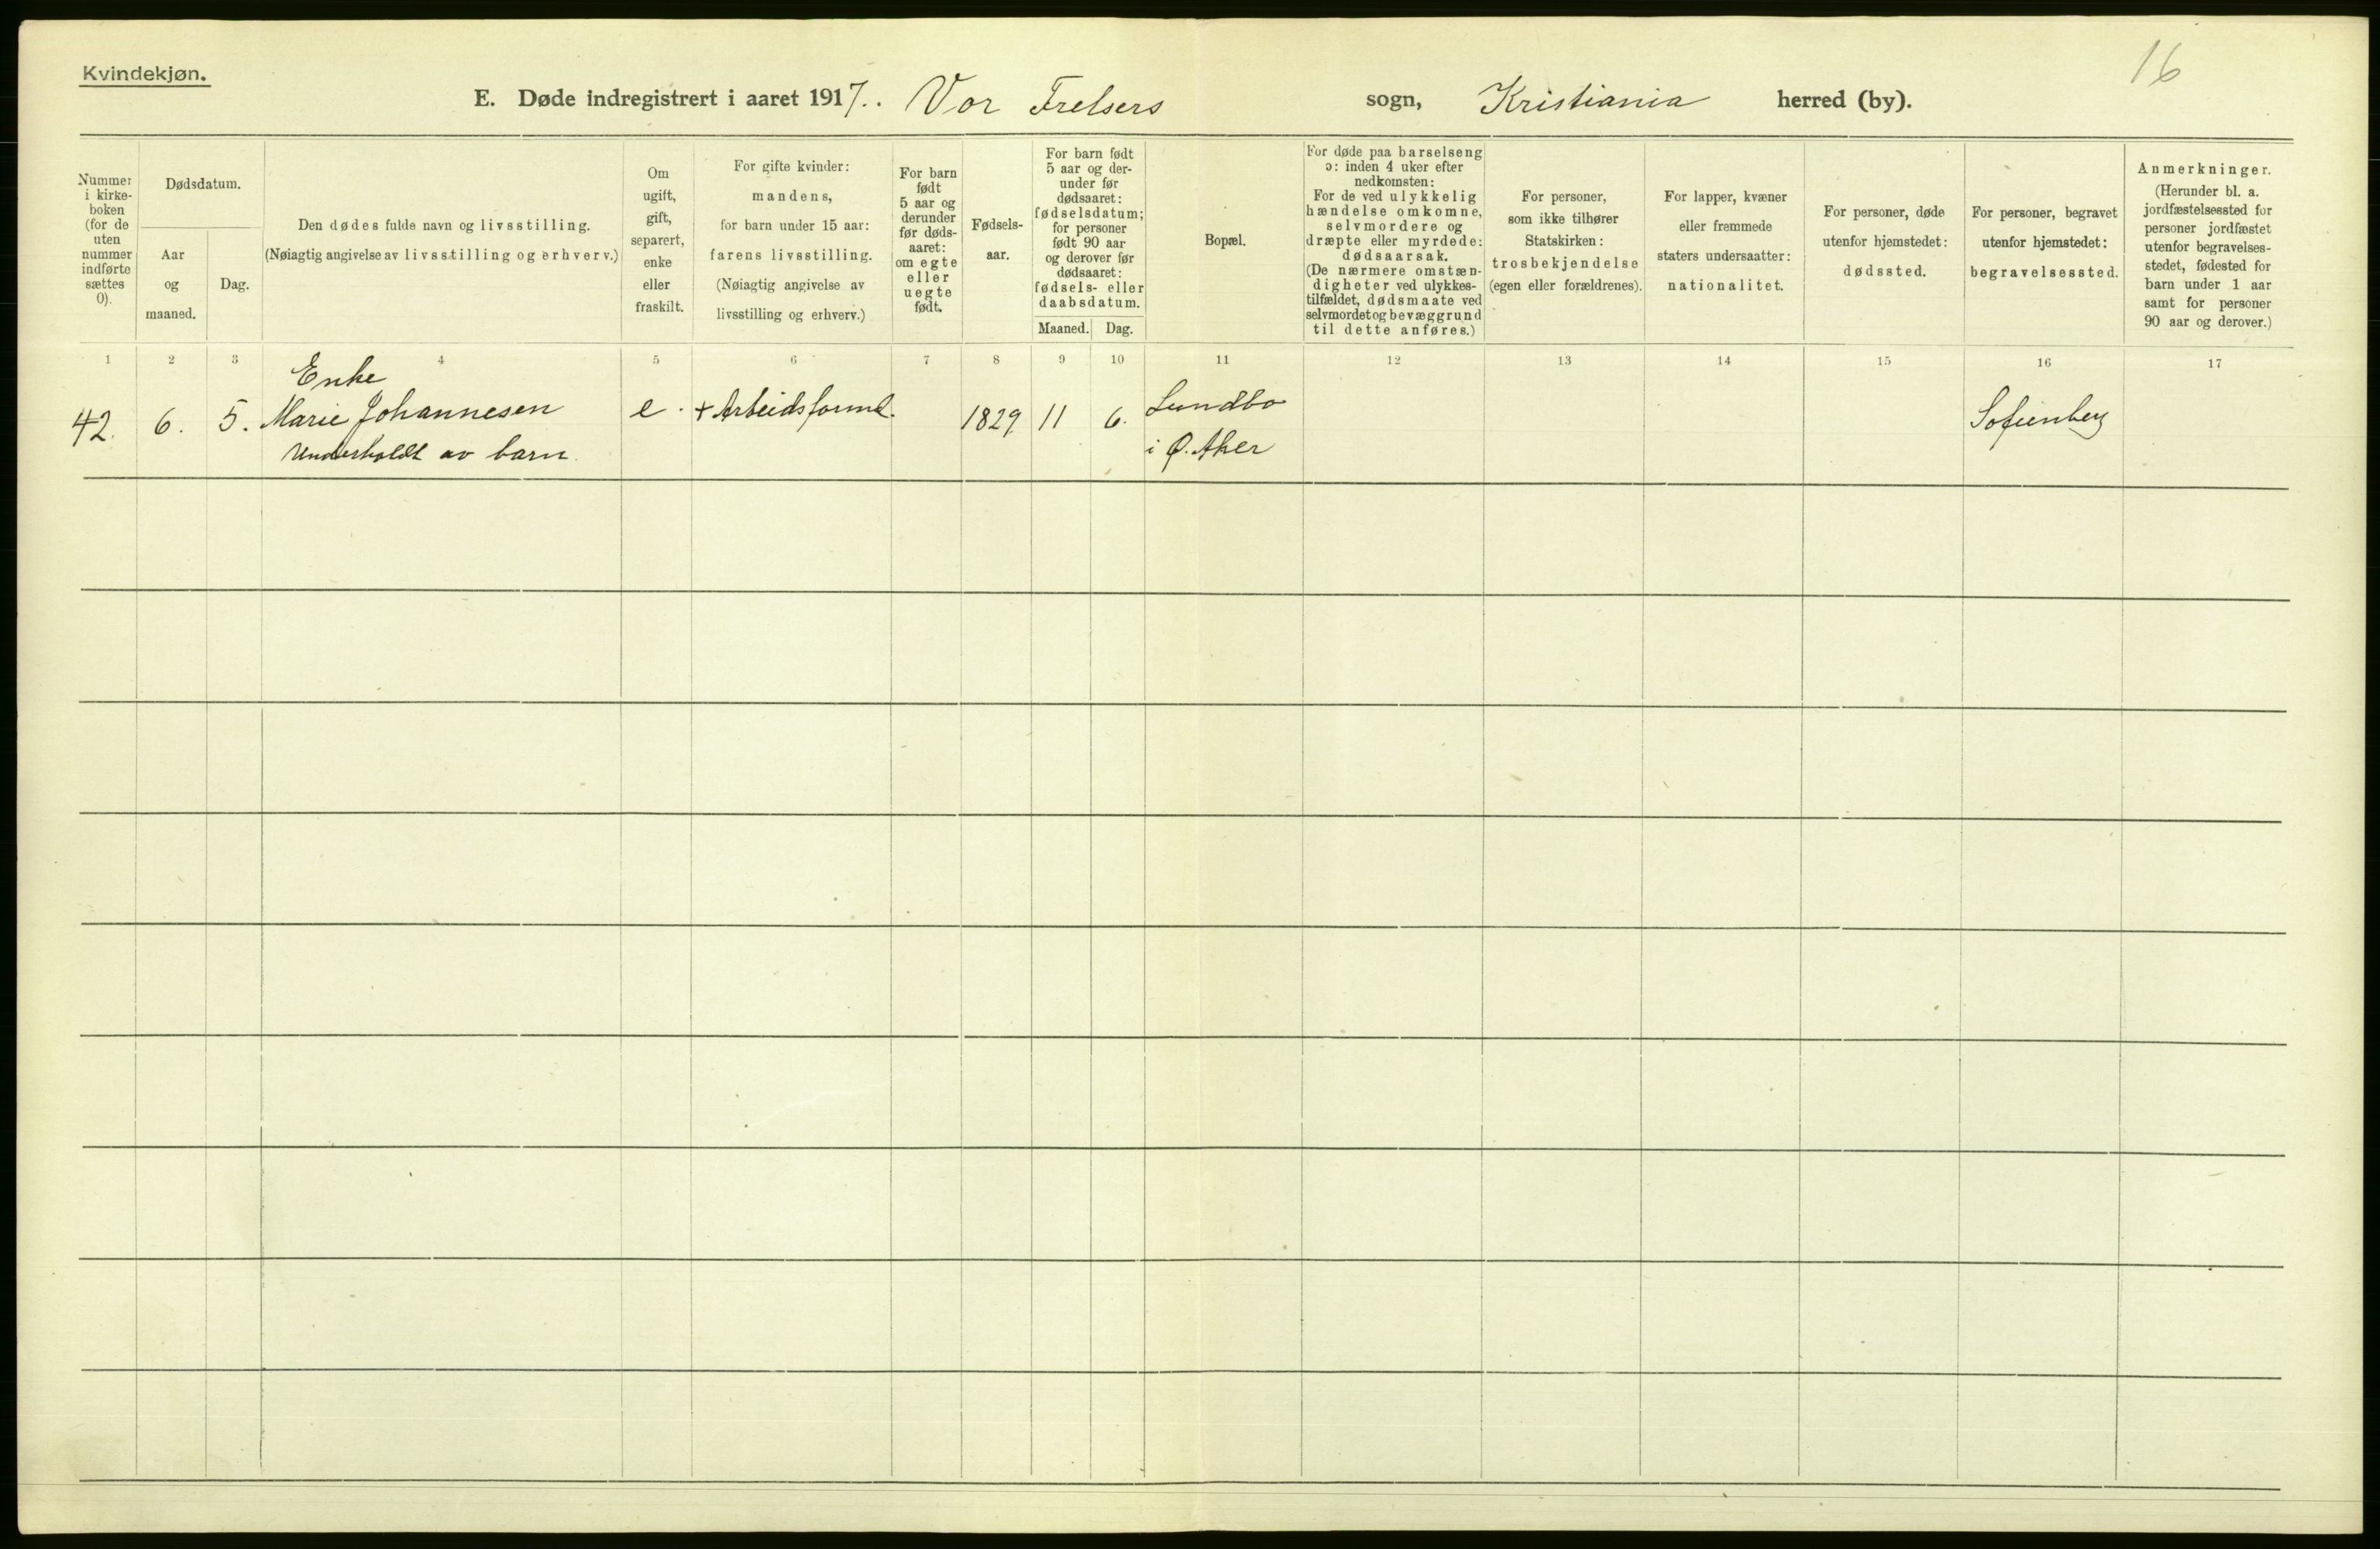 Kvindekjøn.
16
E. Døde indregistrert i aaret 1917. . Vor Frelsers sogn, Kristiania herred (by).
Nummer
i kirke-
boken
(for de
uten
nummer
indførte
sættes
0).
Dødsdatum.
Aar
og
maaned.
Dag.
Den dødes fulde navn og livsstilling.
(Nøiagtig angivelse av livsstilling og erhverv.)
Om
ugift,
gift,
separert,
enke
eller
fraskilt.
For gifte kvinder:
mandens,
for barn under 15 aar:
farens livsstilling.
(Nøiagtig angivelse av
livsstilling og erhverv.)
For barn
født
5 aar og
derunder
før døds-
aaret:
om egte
eller
uegte
født.
Fødsels-
aar.
For barn født
5 aar og der-
under før
dødsaaret:
fødselsdatum;
for personer
født 90 aar
og derover før
dødsaaret:
fødsels- eller
daabsdatum.
Maaned. Dag.
Bopæl.
For døde paa barselseng
ɔ: inden 4 uker efter
nedkomsten:
For de ved ulykkelig
hændelse omkomne,
selvmordere og
dræpte eller myrdede:
dødsaarsak.
(De nærmere omstæn-
digheter ved ulykkes-
tilfældet, dødsmaate ved
selvmordet og bevæggrund
til dette anføres.)
For personer,
som ikke tilhører
Statskirken:
trosbekjendelse
(egen eller forældrenes).
For lapper, kvæner
eller fremmede
staters undersaatter:
nationalitet.
For personer, døde
utenfor hjemstedet:
dødssted.
For personer, begravet
utenfor hjemstedet:
begravelsessted.
Anmerkninger.
(Herunder bl. a.
jordfæstelsessted for
personer jordfæstet
utenfor begravelses-
stedet, fødested for
barn under 1 aar
samt for personer
90 aar og derover.)
1 2 3 4 5 6 7 8 9 10 11 12 13 14 15 16 17
Enke
42. 6. 5. Marie Johannesen e. + Arbeidsformd. 1829 11 6. Lundbo Sofienberg
Underholdt av barn. i Ø. Aker